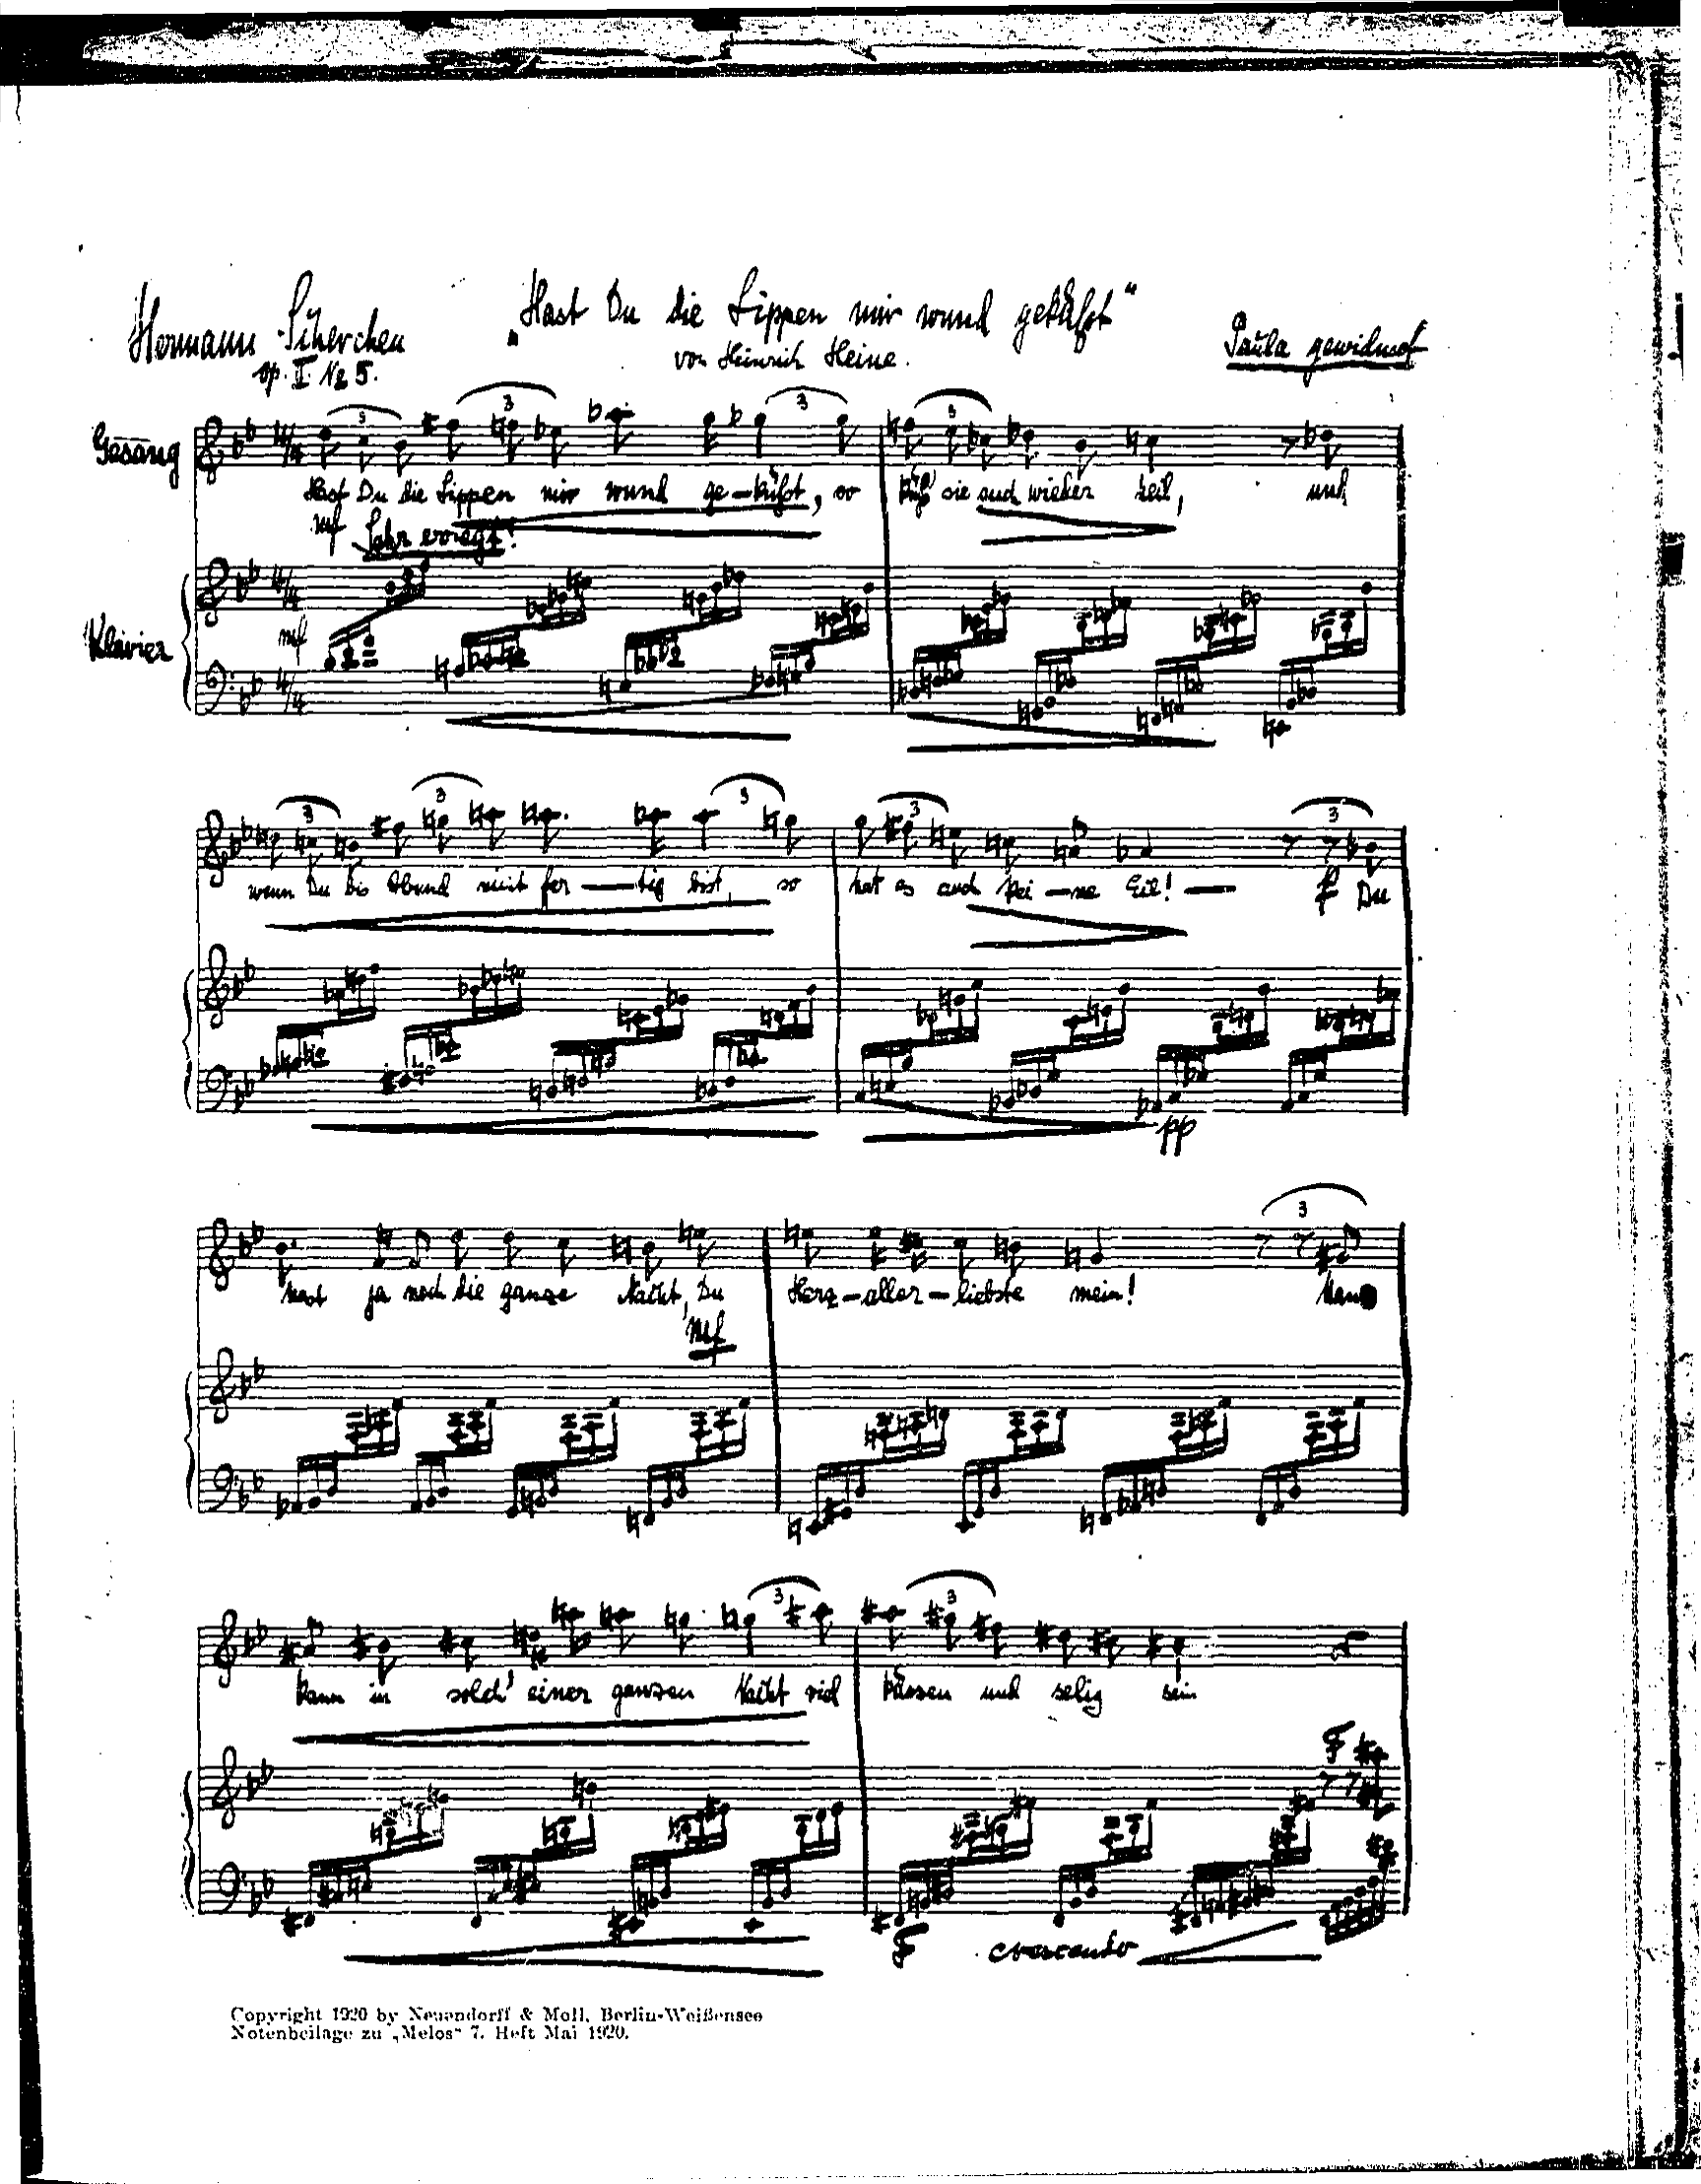 Hermann Scherchen
op. II No 5.
„Hast Du die Lippen mir wund geküßt“
von Heinrich Heine.
Paula gewidmet
Gesang
Hast Du die Lippen mir wund ge-küßt, so küß' sie auch wieder heil, und
mf Sehr erregt!
Klavier
mf
wenn Du bis Abend nicht fer-tig bist, so hat es auch kei-ne Eil! - f Du
pp
hast ja noch die ganze Nacht, Du Herz-aller-liebste mein! Man
mf
kann in solch' einer ganzen Nacht viel küssen und selig sein
f
f crescendo
Copyright 1920 by Neuendorff & Moll, Berlin-Weißensee
Notenbeilage zu „Melos“ 7. Heft Mai 1920.